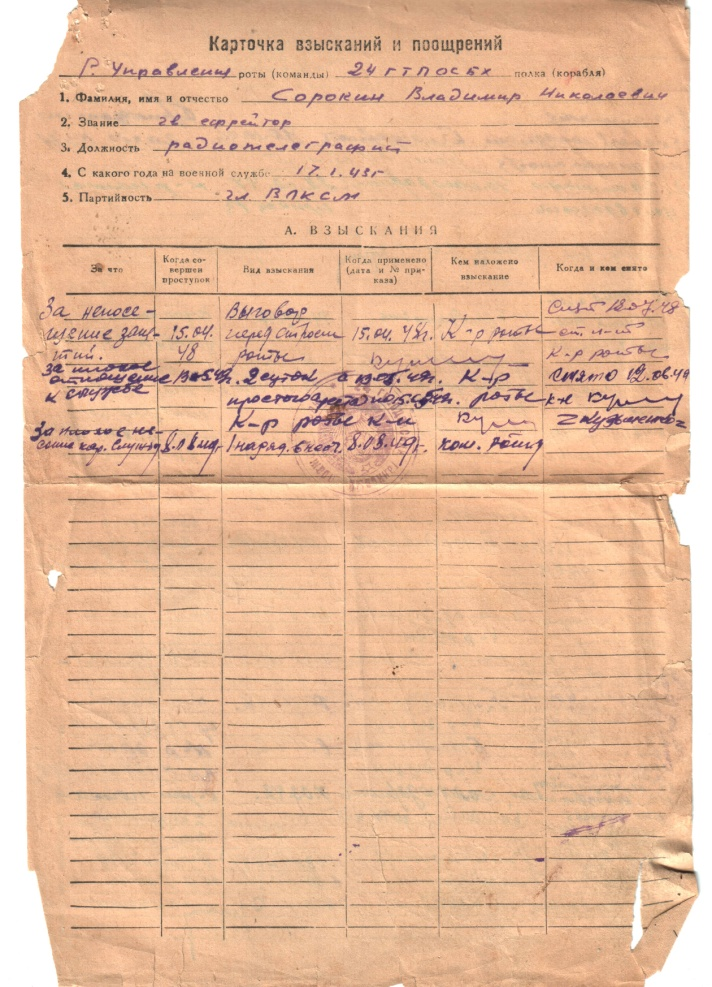 Карточка взысканий и поощрений
Р. Управления роты (команды) 24 ГТПОСБХ полка (корабля)
1. Фамилия, имя и отчество Сорокин Владимир Николаевич
2. Звание гв ефрейтор
3. Должность радиотелеграфист
4. С какого года на военной службе 17.1.43г
5. Партийность чл ВЛКСМ
А. ВЗЫСКАНИЯ
За что
Когда совершен проступок
Вид взыскания
Когда применено (дата и № приказа)
Кем наложено взыскание
Когда и кем снято
За непосе-
щение заня-
тий.
15.04.
48
Выговор
перед строем
роты
15.04. 48г.
К-р роты
Снят
ст. л-т
К-р роты
за плохое
отношение
к службе
2 суток
простого ареста
К-р роты к-н
К-р
роты
Снято 12.06.49
к-н
За плохое не-
сение кар. службы
8.08.49г.
1 наряд
8.08.49г.
ком. роты